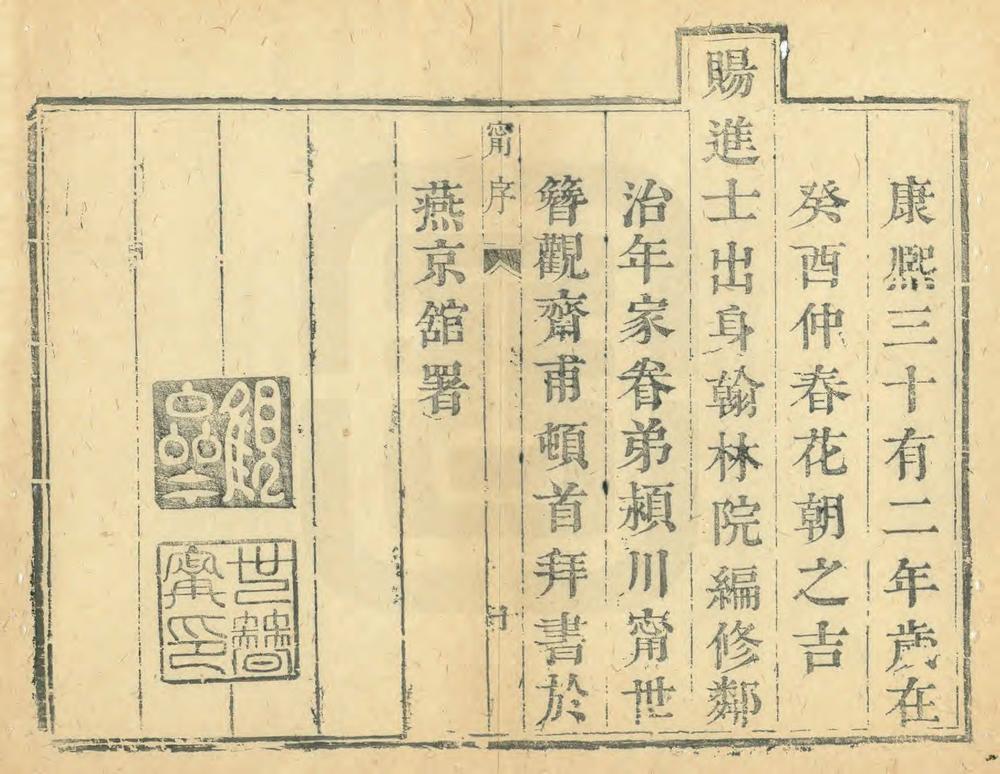 康熙三十有二年歲在
癸酉仲春花朝之吉
賜進士出身翰林院編修鄰
治年家眷弟潁川甯世
簪觀齋甫頓首拜書於
甯序
燕京舘署
世簪
甯印